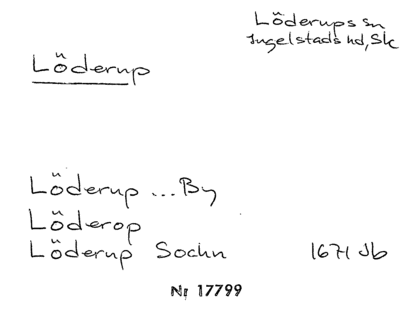 Löderups sn
Ingelstads hd, Sk
Löderup
Löderup ... By
Löderop
Löderup Sochn 1671 Jb
Nr 17799